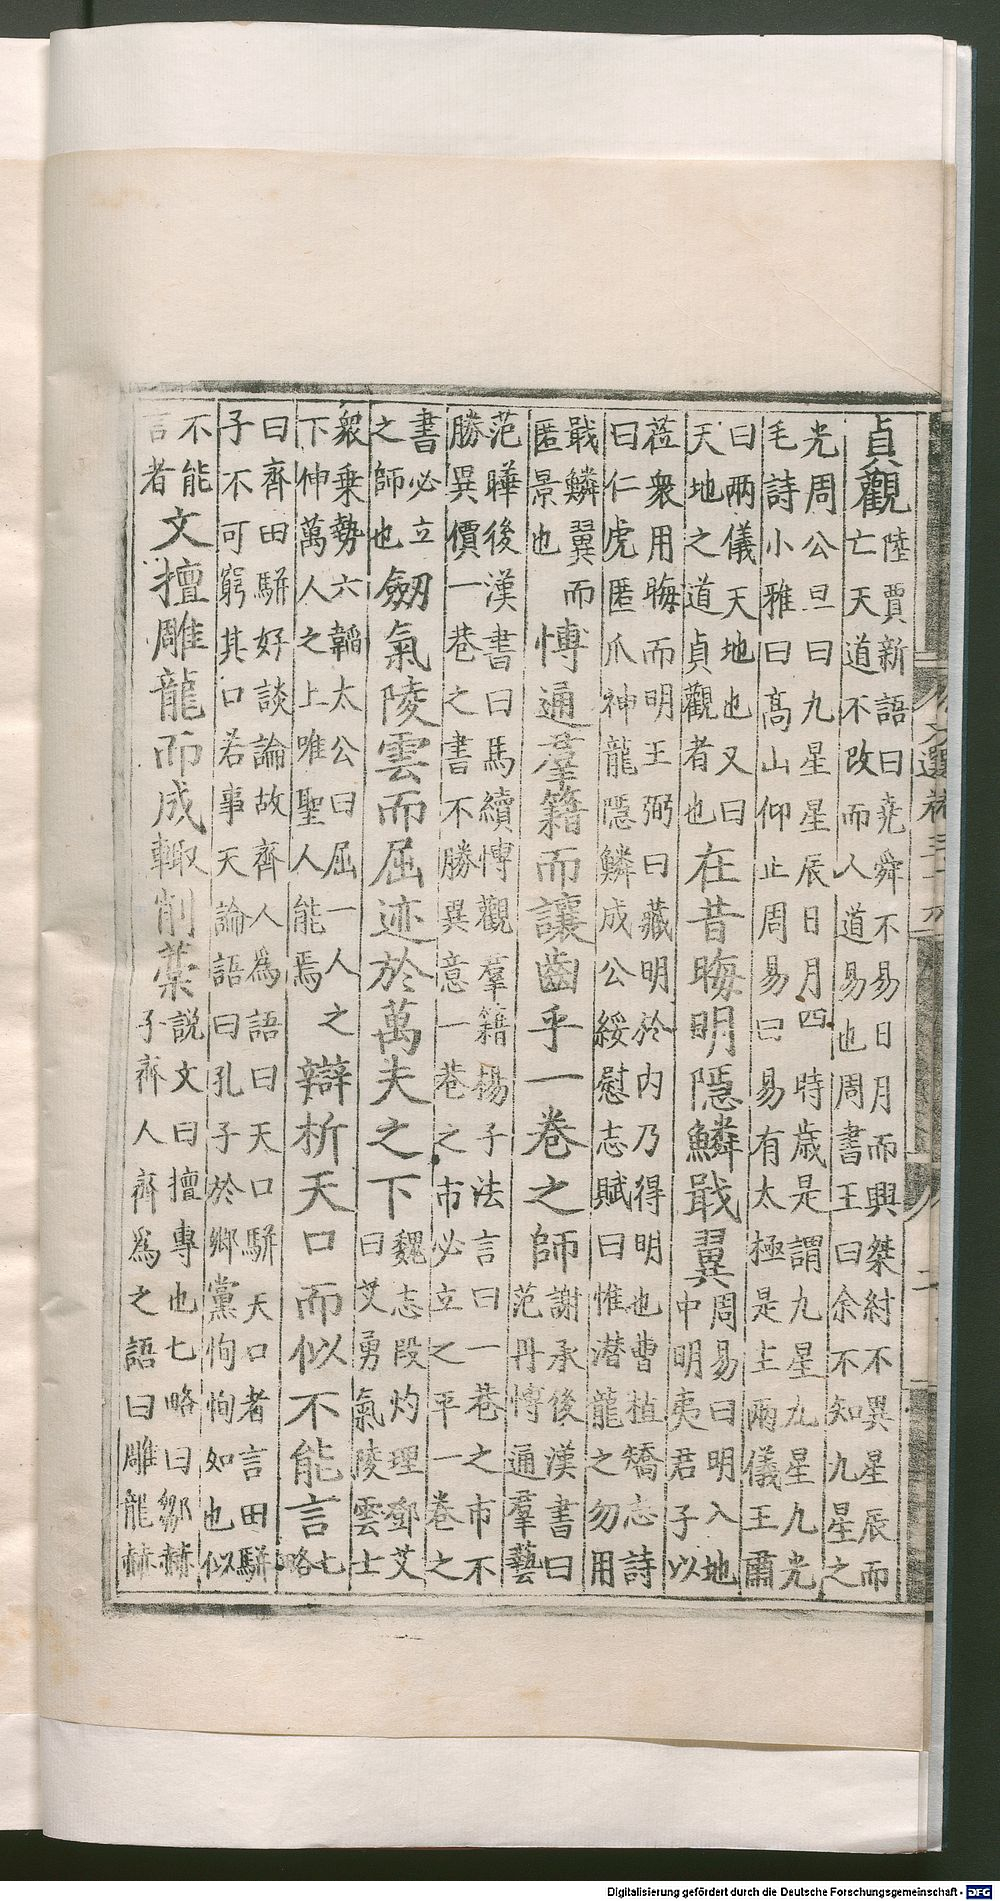 貞觀陸賈新語曰堯舜不易日月而興桀紂不異星辰而
亡天道不改而人道易也周書王曰余不知九星之
光周公旦曰九星星辰日月四時歲是謂九星九星九光
毛詩小雅曰高山仰止周易曰易有太極是生兩儀王肅
曰兩儀天地也又曰
天地之道貞觀者也
在昔晦明隱鱗戢翼
周易曰明入地
中明夷君子以
莅衆用晦而明王弼曰藏明於内乃得明也曹植矯志詩
曰仁虎匿爪神龍隱鱗成公綏慰志賦曰惟潜龍之勿用
戢鱗翼而
匿景也
愽通羣籍而讓齒乎一卷之師
謝承後漢書曰
范丹愽通羣藝
范曄後漢書曰馬續愽觀羣籍楊子法言曰一巷之市不
勝異價一巷之書不勝異意一巷之市必立之平一卷之
書必立
之師也
劒氣陵雲而屈迹於萬夫之下
魏志段灼理鄧艾
曰艾勇氣陵雲士
衆乗勢六韜太公曰屈一人之
下伸萬人之上唯聖人能焉
辯析天口而似不能言
七
略
曰齊田駢好談論故齊人為語曰天口駢天口者言田駢
子不可窮其口若事天論語曰孔子於鄉黨恂恂如也似
不能
言者
文擅雕龍而成輙削藁
説文曰擅專也七略曰鄒赫
子齊人齊爲之語曰雕龍赫
Digitalisierung gefördert durch die Deutsche Forschungsgemeinschaft - DFG